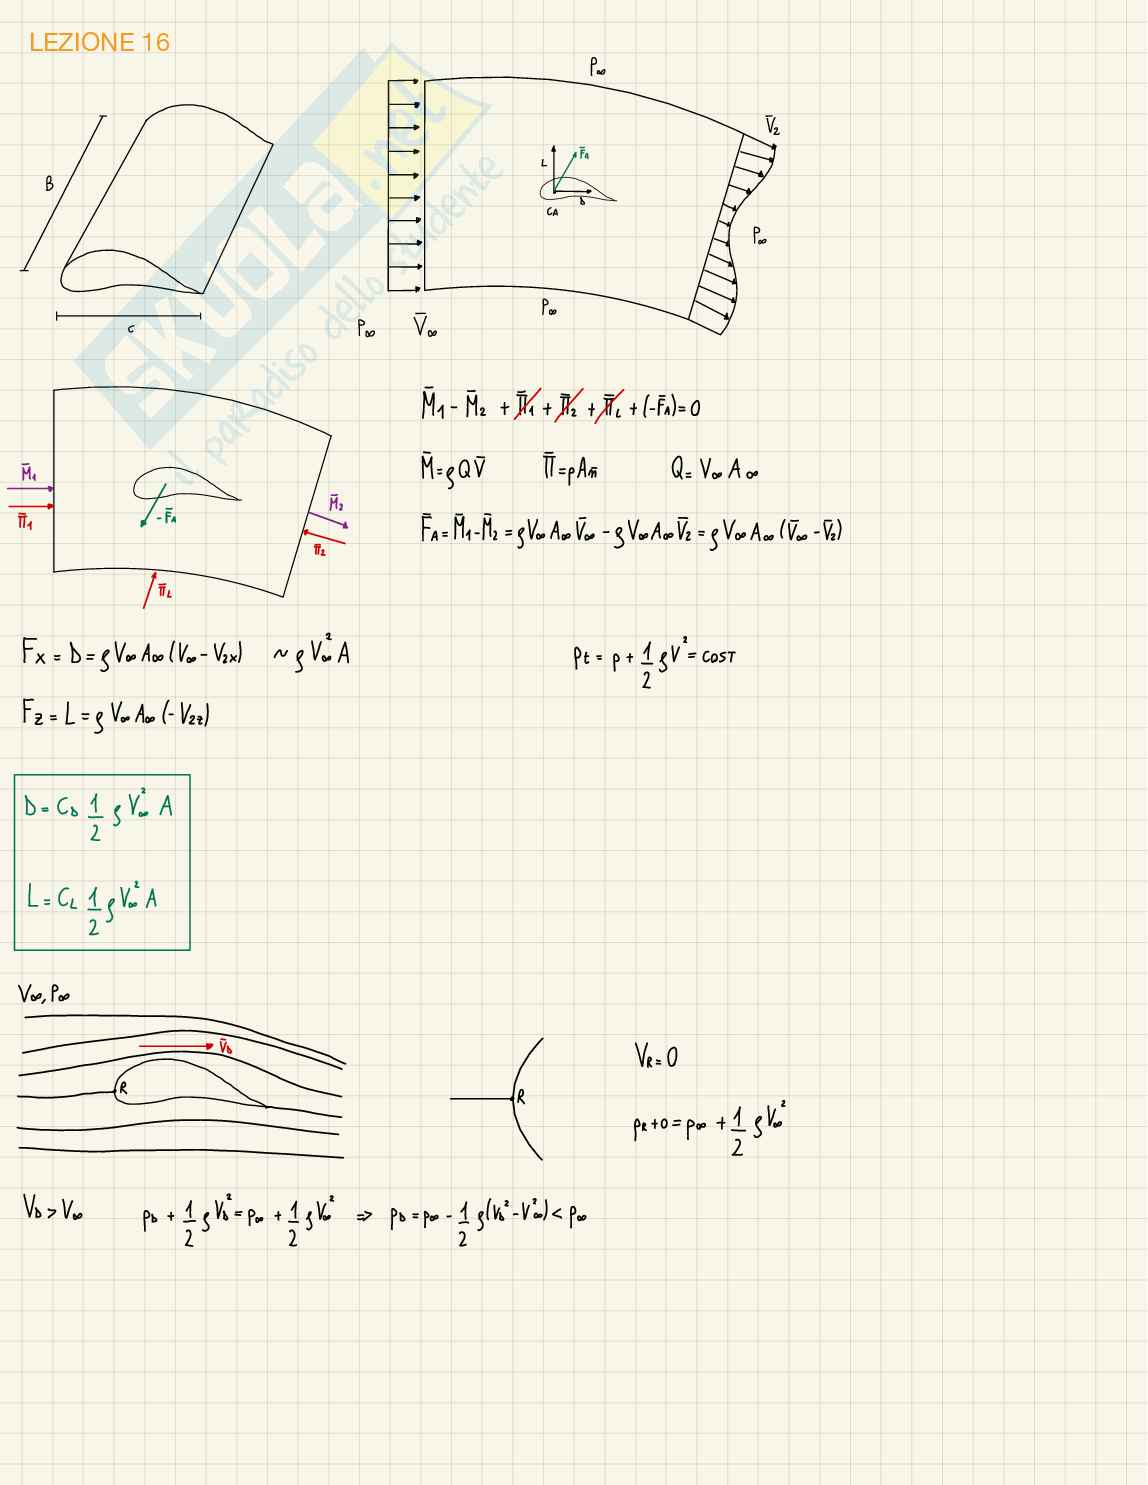 LEZIONE 16
P∞
V̄₂
B
L
F̄A
D
CA
P∞
c
P∞
P∞ V̄∞
SKUOLA.net
il paradiso dello studente
M̄₁ - M̄₂ + Π̄₁ + Π̄₂ + Π̄L + (-F̄A) = 0
M̄ = ρQV̄ Π̄ = pAn̄ Q = V∞ A∞
F̄A = M̄₁ - M̄₂ = ρV∞ A∞ V̄∞ - ρV∞ A∞ V̄₂ = ρV∞ A∞ (V̄∞ - V̄₂)
M̄₁
Π̄₁
-F̄A
M̄₂
Π̄₂
Π̄L
Fx = D = ρV∞ A∞ (V∞ - V₂x) ~ ρV∞² A
Pt = p + 1/2 ρV² = COST
Fz = L = ρV∞ A∞ (-V₂z)
D = CD 1/2 ρV∞² A
L = CL 1/2 ρV∞² A
V∞, P∞
V̄D
R
R
VR = 0
pR + 0 = p∞ + 1/2 ρV∞²
VD > V∞ pD + 1/2 ρVD² = p∞ + 1/2 ρV∞² => pD = p∞ - 1/2 ρ(VD² - V∞²) < p∞